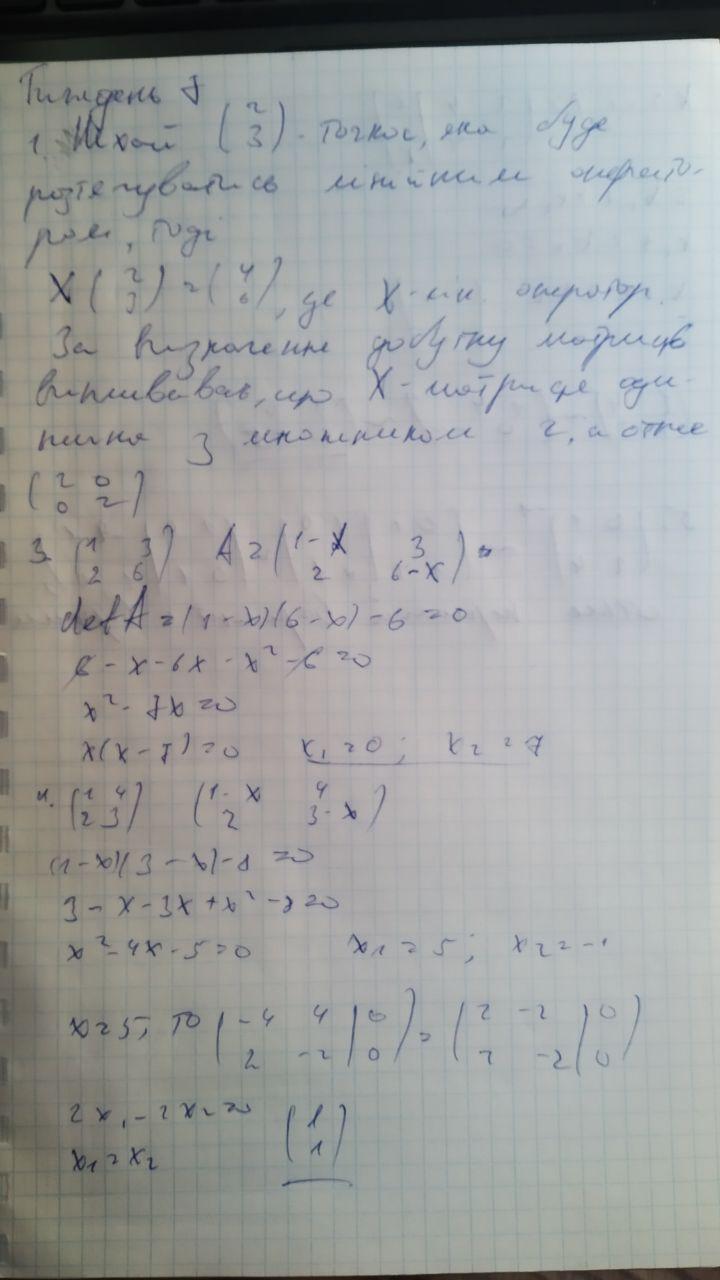 Тиждень 7
1. Нехай (2 3) - точка, яка буде
розтягуватись лінійним операто-
ром, тоді
X (2 3) = (4 6), де X - лін. оператор.
За визначенням добутку матриць
випливає, що X - матриця оди-
нична з множником - 2, а отже
(2 0 0 2)
3. (1 3 2 6) A = (1-X 3 2 6-X) =
det A = (1-x)(6-x) - 6 = 0
6 - x - 6x - x² - 6 = 0
x² - 7x = 0
x(x-7) = 0 x₁ = 0; x₂ = 7
4. (1 4 2 3) (1-x 4 2 3-x)
(1-x)(3-x) - 8 = 0
3 - x - 3x + x² - 8 = 0
x² - 4x - 5 = 0 x₁ = 5; x₂ = -1
x = 5, то (-4 4 | 0 2 -2 | 0) = (2 -2 | 0 2 -2 | 0)
2x₁ - 2x₂ = 0 (1 1)
x₁ = x₂